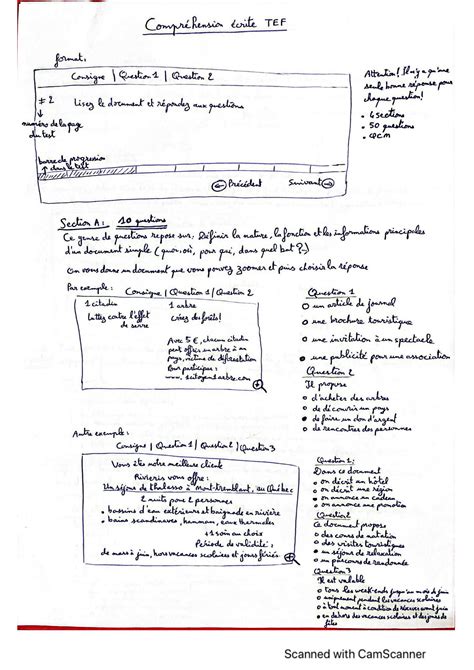 Compréhension écrite TEF
format:
Consigne | Question 1 | Question 2
# 2 Lisez le document et répondez aux questions
numéro de la page
du test
barre de progression
dans le test
Précédent Suivant
Attention! Il n'y a qu'une
seule bonne réponse pour
chaque question!
• 4 sections
• 50 questions
• QCM
Section A: 10 questions
Ce genre de questions repose sur: Définir la nature, la fonction et les informations principales
d'un document simple (quoi, où, pour qui, dans quel but?...)
On vous donne un document que vous pouvez zoomer et puis choisir la réponse
Par exemple:
Consigne | Question 1 | Question 2
1 citadin 1 arbre
Luttez contre l'effet
de serre
Créez des forêts!
Avec 5 €, chaque citadin
peut offrir un arbre à
un pays, victime de déforestation
Pour participer:
Question 1
o un article de journal
o une brochure touristique
o une invitation à un spectacle
• une publicité pour une association
Question 2
Il propose
o d'acheter des arbres
o de découvrir un
pays
• de faire un don d'argent
o de rencontrer des personnes
Autre exemple:
Consigne | Question 1 | Question 2 | Question 3
Vous êtes notre meilleure cliente
vous offre:
Un séjour de thalasso à Mont-tremblant, au Québec
2 nuits pour 2 personnes
• bassins d'eau extérieurs et baignade en rivière
• bains scandinaves, hammam, eaux thermales
+ 1 soin au choix
Période de validité:
de mars à juin, hors vacances scolaires et jours fériés
Question 1:
Dans ce document
o on décrit un hôtel
o on décrit une région
on annonce un cadeau
o on annonce une promotion
Question 2
Ce document propose
o des cours de natation
o des visites touristiques
un séjour de relaxation
o un parcours de randonnée
Question 3
Il est valable
o tous les week-ends jusqu'au mois de juin
o uniquement pendant les vacances scolaires
o à tout moment à condition de réserver avant juin
en dehors des vacances scolaires et des jours de
fêtes
Scanned with CamScanner